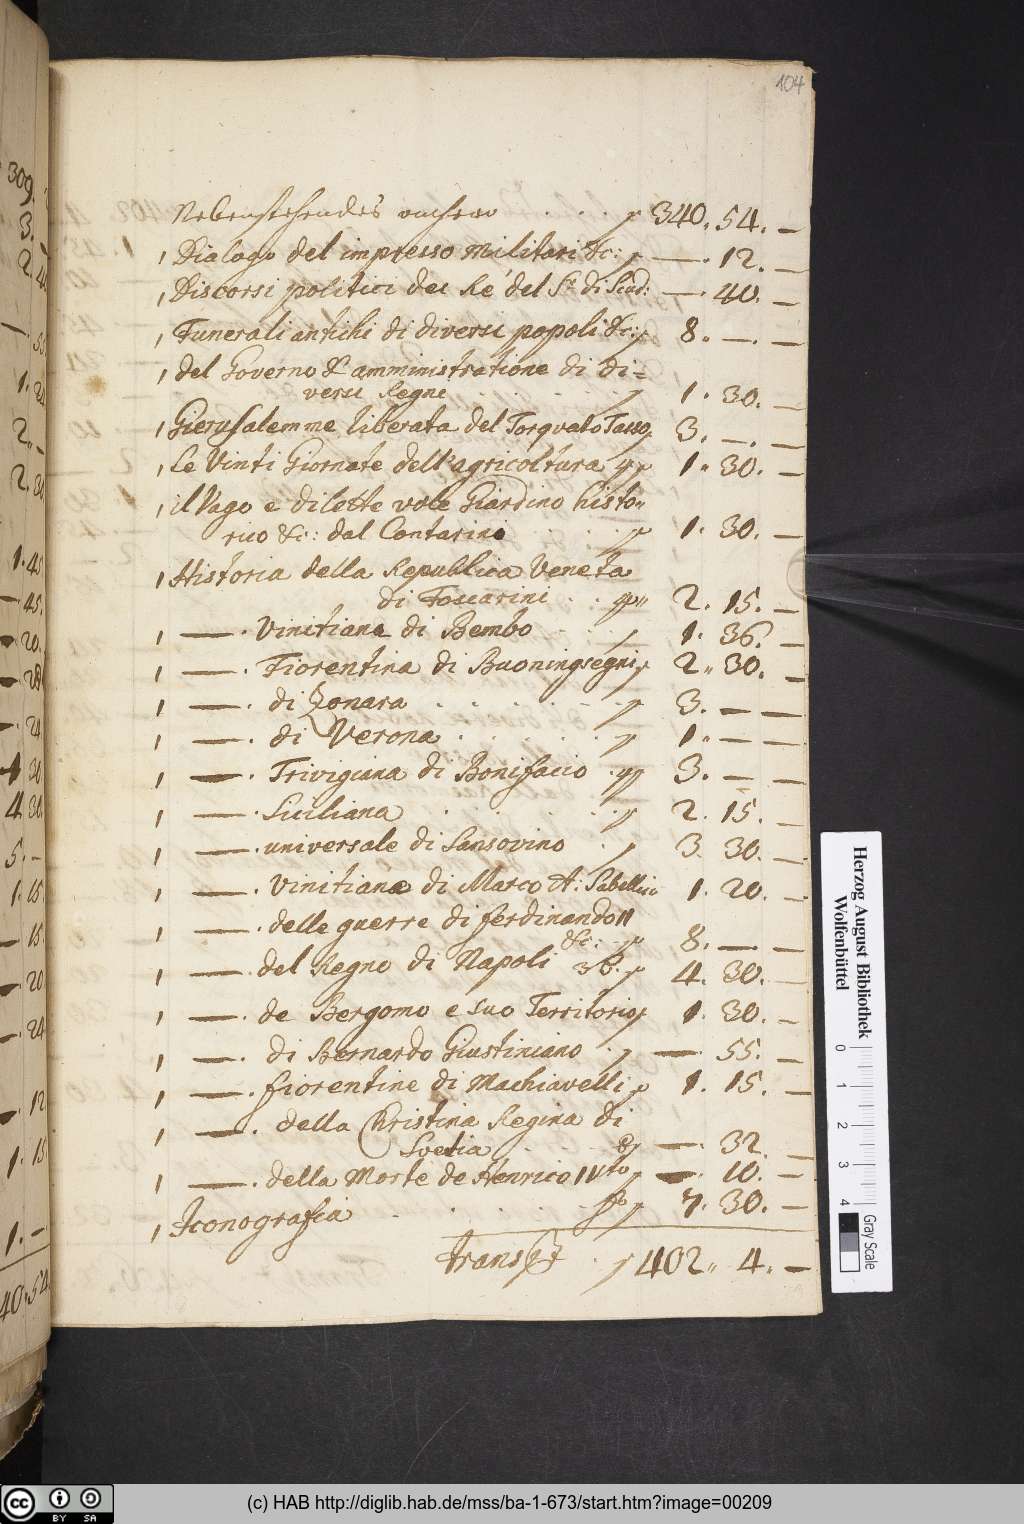 104
Nebenstehendes 340. 54. —
1 Dialogo del impresso militari &c: — 12. —
1 Discorsi politici del Ré del Sr. di — 40. —
1 Funerali antichi di diversi popoli &c: 8. — —
1 del Governo & amministratione di di=
versi Regni 1. 30. —
1 Gierusalemme liberata del Torqvato Tasso 3. — —
1 Le Vinti Giornate dell'agricoltura 1. 30. —
1 il Vago e dilette vole Giardino histo-
rico &c: dal Contarino 1. 30. —
1 Historia della Republica Veneta
di Foscarini 2. 15. —
1 — . Vinitiana di Bembo 1. 36. —
1 — . Fiorentina di Buoninsegni 2. 30. —
1 — . di Zonara 3. — —
1 — . di Verona 1. — —
1 — . Trivigiana di Bonifacio 3. — —
1 — . Siciliana 2. 15. —
1 — . universale di Sansovino 3. 30. —
1 — . Vinitiana di Marco A: Sabellico 1. 20. —
1 — . delle guerre di ferdinando II
&c: 8. — —
1 — . del Regno di Napoli 4. 30. —
1 — . de Bergomo e suo Territorio 1. 30. —
1 — . di Bernardo Giustiniano — 55. —
1 — . fiorentine di Machiavelli 1. 15. —
1 — . della Christina Regina di
Svetia — 32. —
1 — . della Morte de Henrico IVto — 10. —
1 Iconografia 7. 30. —
402. 4. —
309.
3.
1.45
45.
20.
24
30
4. 30.
5. —
1. 15.
15.
20.
24
12
1. 15
1. —
Herzog August Bibliothek
Wolfenbüttel
0 1 2 3 4
Gray Scale
cc BY SA
(c) HAB http://diglib.hab.de/mss/ba-1-673/start.htm?image=00209